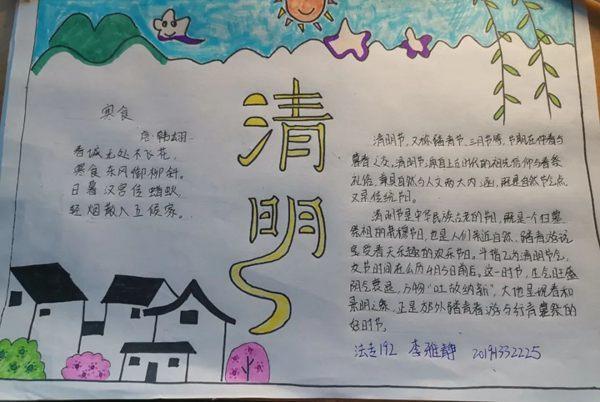 清明
寒食
唐·韩翃
春城无处不飞花,
寒食东风御柳斜。
日暮汉宫传蜡烛,
轻烟散入五侯家。
清明节,又称踏青节、三月节等,节期在仲春与
暮春之交。清明节,源自上古时代的祖先信仰与春祭
礼俗,兼具自然与人文两大内涵,既是自然节气点
又是传统节日。
清明节是中华民族古老的节日,既是一个扫墓
祭祖的肃穆节日,也是人们亲近自然、踏青游玩
享受春天乐趣的欢乐节日。斗指乙为清明节气,
交节时间在公历4月5日前后。这一时节,生气旺盛
阴气衰退,万物“吐故纳新”,大地呈现春和
景明之象,正是郊外踏青春游与行清墓祭的
好时节。
法走192 李雅静 2019332225